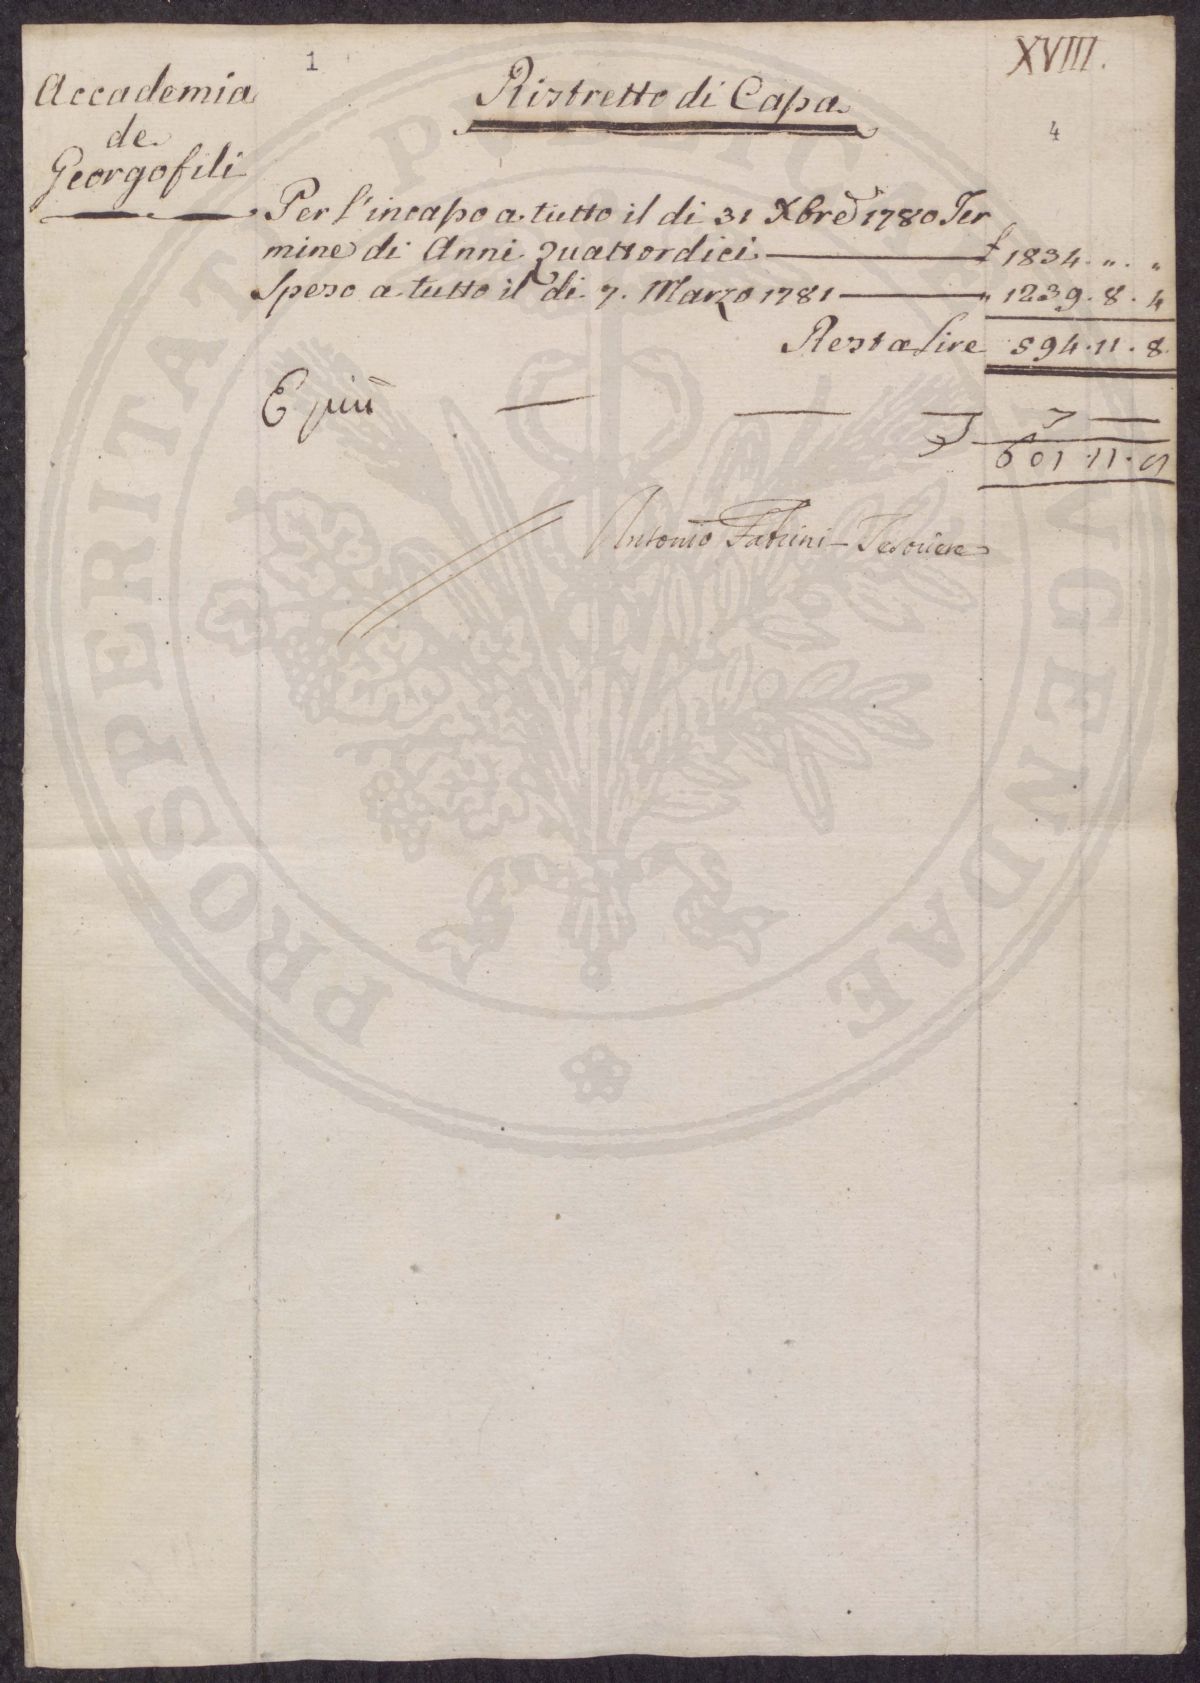 1
XVIII.
4
Accademia
de
Georgofili
Ristretto di Cassa
Per l'incasso a tutto il di 31 Xbre 1780 Ter
mine di Anni Quattordici £ 1834. „. „
Speso a tutto il di 7. Marzo 1781 „ 1239. 8. 4
Resta Lire 594. 11. 8
E più 7
601. 11.
Antonio Tesoriere
PROSPERITATI PUBLICAE AUGENDAE